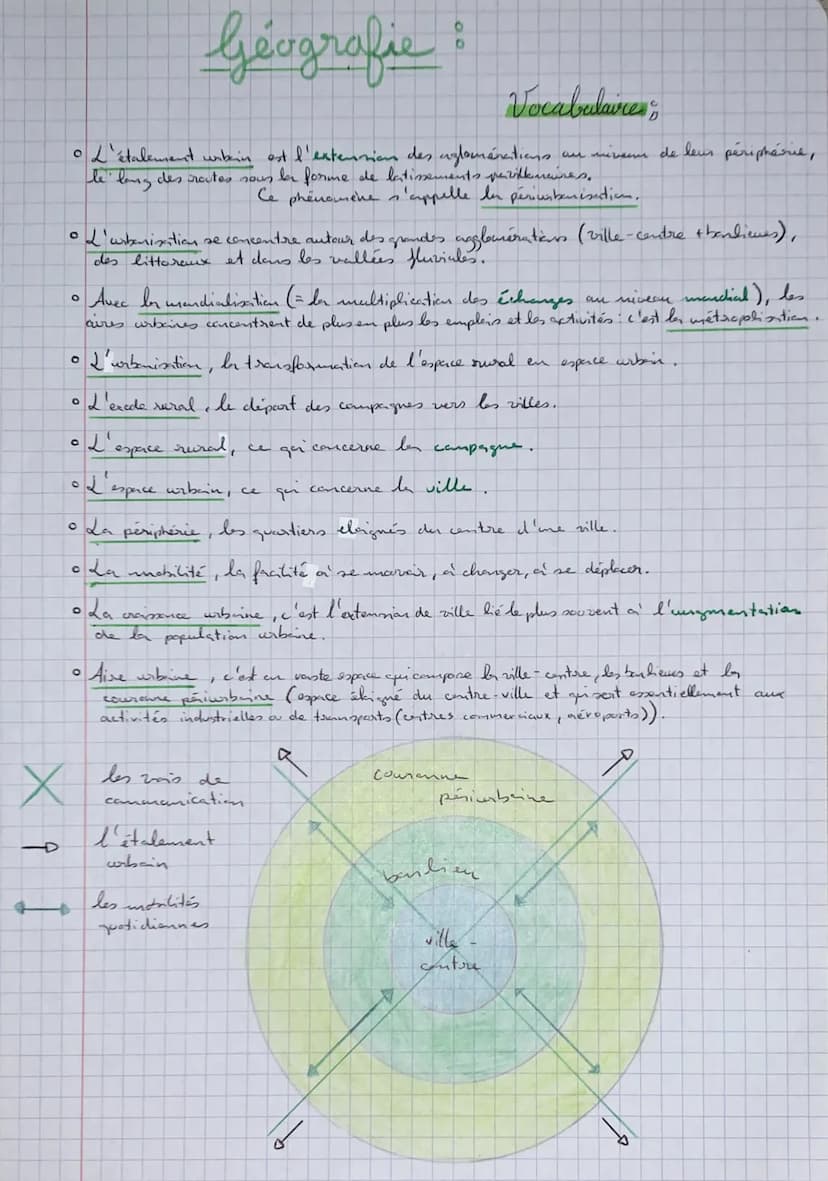 Géografie :
Vocabulaire :
L'étalement urbain est l'extension des aglomérations au niveau de leur périphérie,
le long des routes sous la forme de lotissements pavillonnaires.
Ce phénomène s'appelle la périurbanisation.
L'urbanisation se concentre autour des grandes agglomérations (ville-centre + banlieues),
des littoraux et dans les vallées fluviales.
Avec la mondialisation (= la multiplication des échanges au niveau mondial), les
aires urbaines concentrent de plus en plus les emplois et les activités : c'est la métropolisation.
L'urbanisation, la transformation de l'espace rural en espace urbain.
L'exode rural, le départ des campagnes vers les villes.
L'espace rural, ce qui concerne la campagne.
L'espace urbain, ce qui concerne la ville.
La périphérie, les quartiers eloignés du centre d'une ville.
La mobilité, la facilité à se mouvoir, à changer, à se déplacer.
La croissance urbaine, c'est l'extension de ville lié le plus souvent à l'augmentation
de la population urbaine.
Aire urbaine, c'est un vaste espace qui compose la ville-centre, les banlieues et la
couronne périurbaine (espace éloigné du centre-ville et qui sert essentiellement aux
activités industrielles ou de transports (centres commerciaux, aéroports)).
les vois de
communication
l'étalement
urbain
les mobilités
quotidiennes
couronne
périurbaine
banlieu
ville-
centre